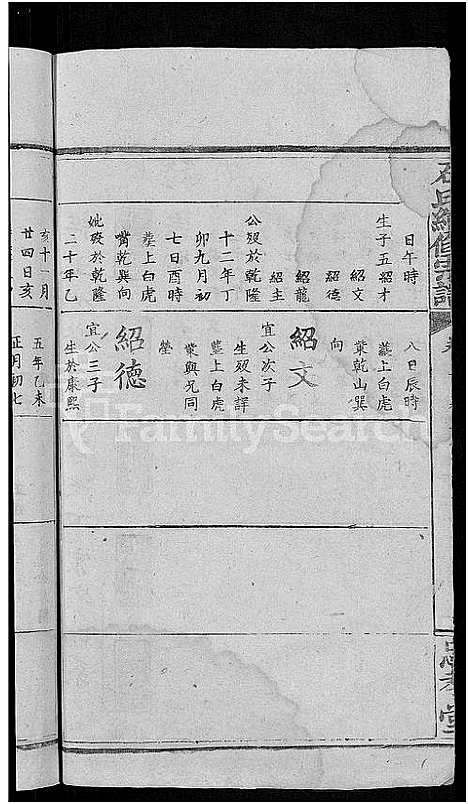 石氏續修宗譜
忠孝堂
日午時
生子五紹才
紹文
紹德
紹龍
紹主
公歿於乾隆
十二年丁
卯九月初
七日酉時
塟上白虎
嘴乾巽向
妣歿於乾隆
二十年乙
八日辰時
塟上白虎
嘴乾山巽
向
紹文
宜公次子
生歿未詳
塟上白虎
嘴與兄同
塋
紹德
宜公三子
生於康熙
亥十一月
廿四日亥
五年乙未
正月初七
FamilySearch